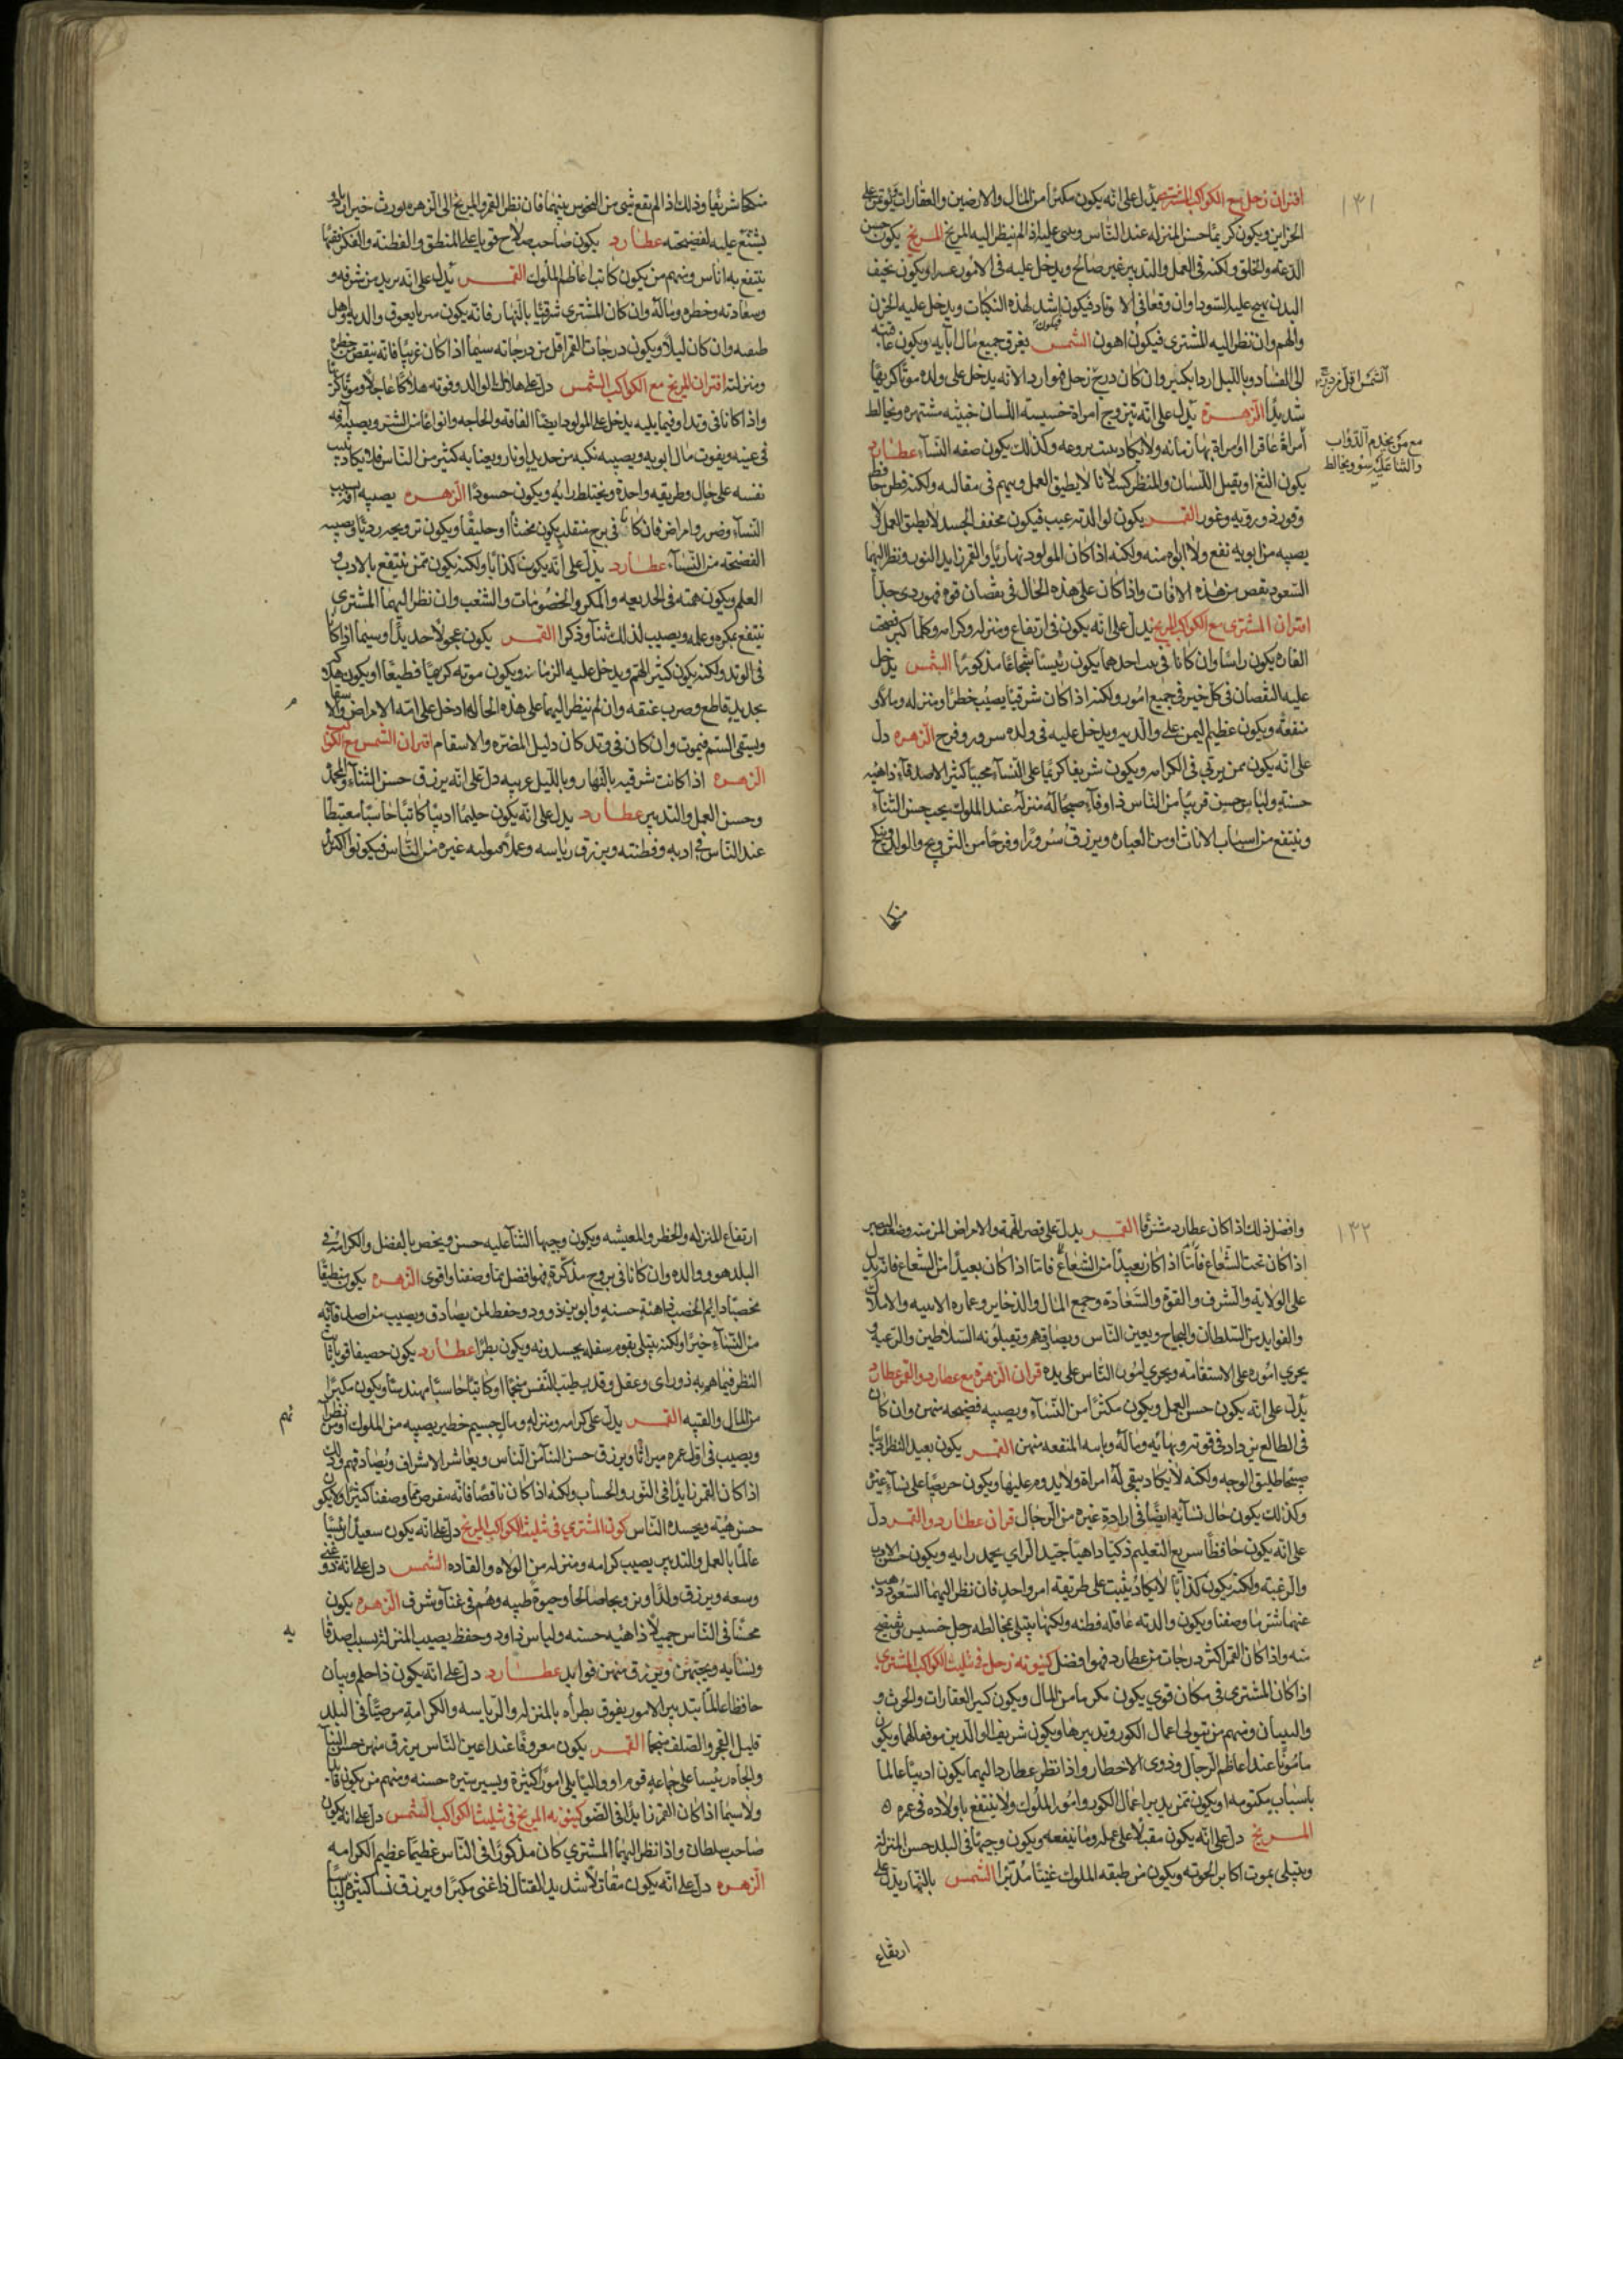 ١٣١
اقتران زحل مع الكواكب المشتري يدل على انه يكون مكثرا من المال والارضين والعقارات
الخزاين ويكون كريما حسن المنزله عند الناس اذا لم ينظر اليه المريخ المريخ يكون حسن
الدعه والخلق ولكنه في العمل والتدبير غير صالح ويدخل عليه في الامور عسرا ويكون نحيف
البدن يهيج عليه السودا وان وقعا في الاوتاد فيكون اشد لهذه النكبات ويدخل عليه الحزن
والهم وان نظر اليه المشتري فيكون اهون الشمس فيكون يفرق جميع مال ابآيه ويكون عاقبته
الى الفساد وبالليل اردا بكثير وان كان درج زحل فهو اردا لانه يدخل على والده موتا كريها
الشمس اقل من درجه
شديدا الزهرة يدل على انه يتزوج امراة خسيسة اللسان خبيثه مشتهره ويخالط
مع من يخدم الدواب
والثنا عليه سوء ويخالط
امراة عاقرا ولا يكاد وكذلك يكون صفه النسآء عطارد
يكون الثغ او ثقيل اللسان والمنظر كسلانا لا يطيق العمل ويهيم في مقالته ولكنه فطن حافظ
وقور ذو رويه وغور القمر يكون لوالدته عيب فيكون مخفف الجسد لا يطيق العمل ولا
يصيبه من ابويه نفع ولا ولكنه اذا كان المولود نهاريا والقمر زايد النور ونظر اليهما
السعود نقص من هذه الافات واذا كان على هذه الحال في نقصان قوه فهو ردي جدا
اقتران المشتري مع الكواكب المريخ يدل على انه يكون في ارتفاع ومنزله وكرامه
القاده يكون راسا وان كانا في بيت احدهما يكون رئيسا شجاعا مذكورا الشمس يدخل
عليه النقصان في كل خير في جميع اموره ولكنه اذا كان شرقيا يصيب خطرا ومنزله ومالا و
منفعه ويكون عظيم اليمن على والديه ويدخل عليه في ولده سرور وفرح الزهره دل
على انه يكون ممن يرتقي في الكرامه ويكون شريفا كريما على النسآء محبا كثير الاصدقآء ذا هيئه
حسنة ولباس حسن قريبا من الناس ذا وفآء صحيحا له منزله عند الملوك يحب حسن الثنآء
وينتفع من اسباب الاناث او من العباده ويرزق سرورا وفرحا من التزويج والولد
منكحا
منكحا شريفا وذلك اذا لم يقع شي من النحوس بينهما فان نظر القمر والمريخ الى الزهره يورث خيرا
يشنع عليه لفضيحته عطارد يكون صاحب صلاح قويا على المنطق والفطنه والفكر فقيها
ينتفع به اناس ومنهم من يكون كاتبا لعاظم الملوك القمر يدل على انه يزيد من شرفه و
وسعادته وخطره وماله وان كان المشتري شرقيا بالنهار فانه يكون سريا يفوق والديه واهل
طبقته وان كان ليلا ويكون درجات القمر اقل من درجاته سيما اذا كان غربيا فانه ينقص من خطره
ومنزلته اقتران المريخ مع الكواكب الشمس دل على هلاك الوالد وفوته هلاكا عاجلا وموتا كريها
واذا كانا في وتد او فيما يليه يدخل على المولود ايضا الفاقه والحاجه وانواعا من الشر ويصيبه آفه
في عينه ويفوت مال ابويه ويصيبه نكبه من حديد او نار ويعنا به كثير من الناس فلا يكاد يثبت
نفسه على حال وطريقه واحدة ويختلط رايه ويكون حسودا الزهره يصيبه آفه بسبب
النسآء وضرر وامراض فان كانا في برج منقلب يكون مخنثا او حليقا ويكون تزويجه رديا ويصيبه
الفضيحه من النسآء عطارد يدل على انه يكون كذابا ولكنه يكون ممن ينتفع بالادب و
العلم ويكون همته في الخديعه والمكر والخصومات والشغب وان نظر اليهما المشتري
ينتفع بمكره وعلمه ويصيب لذلك ثنآء وذكرا القمر يكون عجولا حديدا وسيما اذا كانا
في الوتد ولكنه يكون كثير الهم ويدخل عليه الزمانه ويكون موته كريها فظيعا او يكون هلاكه
بحديد قاطع وضرب عنقه وان لم ينظر اليهما على هذه الحاله ادخل على امه الامراض والاسقام
ويسقى السم فيموت وان كان في وتد كان دليل المضره والاسقام اقتران الشمس مع الكواكب
الزهره اذا كانت شرقيه بالنهار وبالليل غربيه دل على انه يرزق حسن الثنآء والمحمده
وحسن العمل والتدبير عطارد يدل على انه يكون حليما اديبا كاتبا حاسبا مغتبطا
عند الناس في ادبه وفطنته ويرزق رياسه وعملا غيره من الناس فيكونوا اكثر
١٣٢
وافضل ذلك اذا كان عطارد مشرقا القمر يدل على قصر الهمه والامراض المزمنه وضعف البصر
اذا كان تحت الشعاع فاما اذا كان بعيدا من الشعاع فاما اذا كان بعيدا من الشعاع فانه يدل
على الولايه والشرف والقوة والسعادة وجمع المال والذخاير وعماره الابنيه والاملاك
والفوايد من السلطان والنجاح ويعين الناس ويصادقهم ويقبلونه السلاطين والرعيه و
يجري اموره على الاستقامه ويجري امور الناس على يده قران الزهرة مع عطارد والقمر عطارد
يدل على انه يكون حسن العمل ويكون مكثرا من النسآء ويصيبه فضيحه منهن وان كان
في الطالع يزداد في قوته وبهائه وماله وباسه المنفعه منهن القمر يكون بعيد النظر
صبيحا طليق الوجه ولكنه لا يكاد يبقى له امراة ولا يدوم عليها ويكون حريصا على نسآء غيره
وكذلك يكون حال نسآئه ايضا في ارادة غيره من الرجال قران عطارد والقمر دل
على انه يكون حافظا سريع التعليم ذكيا داهيا جيد الراي يحمد رايه ويكون حسن الادب
والرغبه ولكنه يكون كذابا لا يكاد يثبت على طريقه امر واحد فان نظر اليهما السعود ذهب
عنهما شر ما وصفنا ويكون والدته عاقله فطنه ولكنها يبتلى بمخالطه رجل خسيس
منه واذا كان القمر اكثر درجات من عطارد فهو افضل كينونه زحل في تثليث الكواكب المشتري
اذا كان المشتري في مكان قوي يكون مكرما من المال ويكون كبير العقارات والحرث و
والبنيان ومنهم من يتولى اعمال الكور وتدبيرها ويكون شريف الوالدين ويكون
مامونا عند اعاظم الرجال وذوي الاخطار واذا نظر عطارد اليهما يكون اديبا عالما
باسباب مكتومه او يكون ممن يدبر اعمال الكور وامور الملوك ولا ينتفع باولاده في عمره
المريخ دل على انه يكون مقبلا على عمله وما ينفعه ويكون وجيها في البلد حسن المنزله
ويبتلى بموت اكابر اخوته ويكون من طبقه الملوك غنيا مدبرا الشمس بالنهار يدل على
ارتفاع
ارتفاع المنزله والخطر والمعيشه ويكون وجيها الثنآ عليه حسن ويخص بالفضل والكرامه في
البلد هو ووالده وان كانا في بروج مذكرة فهو افضل مما وصفنا واقوى الزهره يكون منطيقا
مخصبا دايم الخصب ذا هيئة حسنة وابوين ذو ود وحفظ لمن يصادق ويصيب من اصدقآئه
من النسآء خيرا ولكنه يبتلى بقوم سفله يحسدونه ويكون بطرا عطارد يكون حصيفا قويا ثابت
النظر فيما هم به ذو راى وعقل وقدر طيب النفس منجما او كاتبا حاسبا مهندسا ويكون مكثرا
من المال والقنيه القمر يدل على كرامه ومنزله ومال جسيم خطير يصيبه من الملوك او من نظرآئهم
ويصيب في اول عمره ميراثا ويرزق حسن الثنآ من الناس ويعاشر الاشراف ويصادقهم وذلك
اذا كان القمر زايدا في النور والحساب ولكنه اذا كان ناقصا فانه سينقص مما وصفنا كثيرا ولا يكون
حسن هيئه ويحسده الناس كون المشتري في تثليث الكواكب المريخ دل على انه يكون سعيدا رئيسا
عالما بالعمل والتدبير يصيب كرامه ومنزله من الولاه والقاده الشمس دل على انه ذو غنى
وسعه ويرزق ولدا وتزويجا صالحا وحيوة طيبه وهم في غنآ وشرف الزهره يكون
محببا في الناس جميلا ذا هيئه حسنه ولباس ذا ود وحفظ يصيب المنزله بسبب اصدقآئه
ونسآئه ويحبهن ويرزق منهن فوايد عطارد دل على انه يكون ذا حلم وبيان
حافظا عالما بتدبير الامور يفوق نظرآه بالمنزله والرياسه والكرامة مرضيا في البلد
قليل الفخر والصلف منجما القمر يكون معروفا عند اعين الناس يرزق منهن حسن الثنآ
والجاه رئيسا على جماعه قومه او واليا يلي امورا كثيرة ويسير بسيره حسنه ومنهم من يكون قايدا
ولا سيما اذا كان القمر زايدا في الضو كينونه المريخ في تثليث الكواكب الشمس دل على انه يكون
صاحب سلطان واذا نظر اليهما المشتري كان مذكورا في الناس عظيما عظيم الكرامه
الزهره دل على انه يكون مقاتلا شديد القتال ذا غنى مكبرا ويرزق نسا كثيره